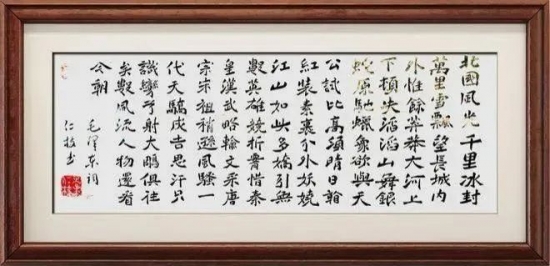 北國風光千里冰封
萬里雪飄望長城內
外惟餘莽莽大河上
下頓失滔滔山舞銀
蛇原馳蠟象欲與天
公試比高須晴日看
紅裝素裹分外妖嬈
江山如此多嬌引無
數英雄競折腰惜秦
皇漢武略輸文采唐
宗宋祖稍遜風騷一
代天驕成吉思汗只
識彎弓射大鵰俱往
矣數風流人物還看
今朝
毛澤東詞
仁書